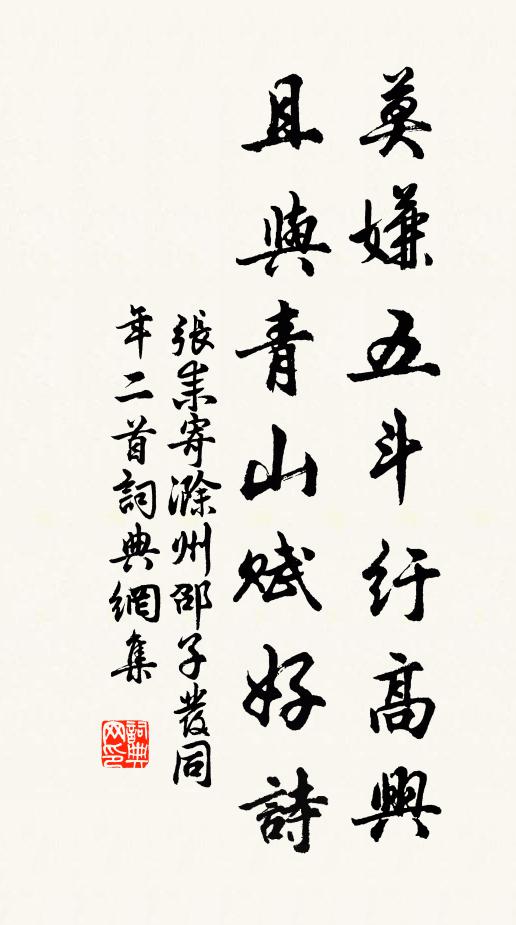 莫嫌五斗紆高興
且與青山賦好詩
張耒寄滁州邵子發同
年二首詞典網集
詞典网印